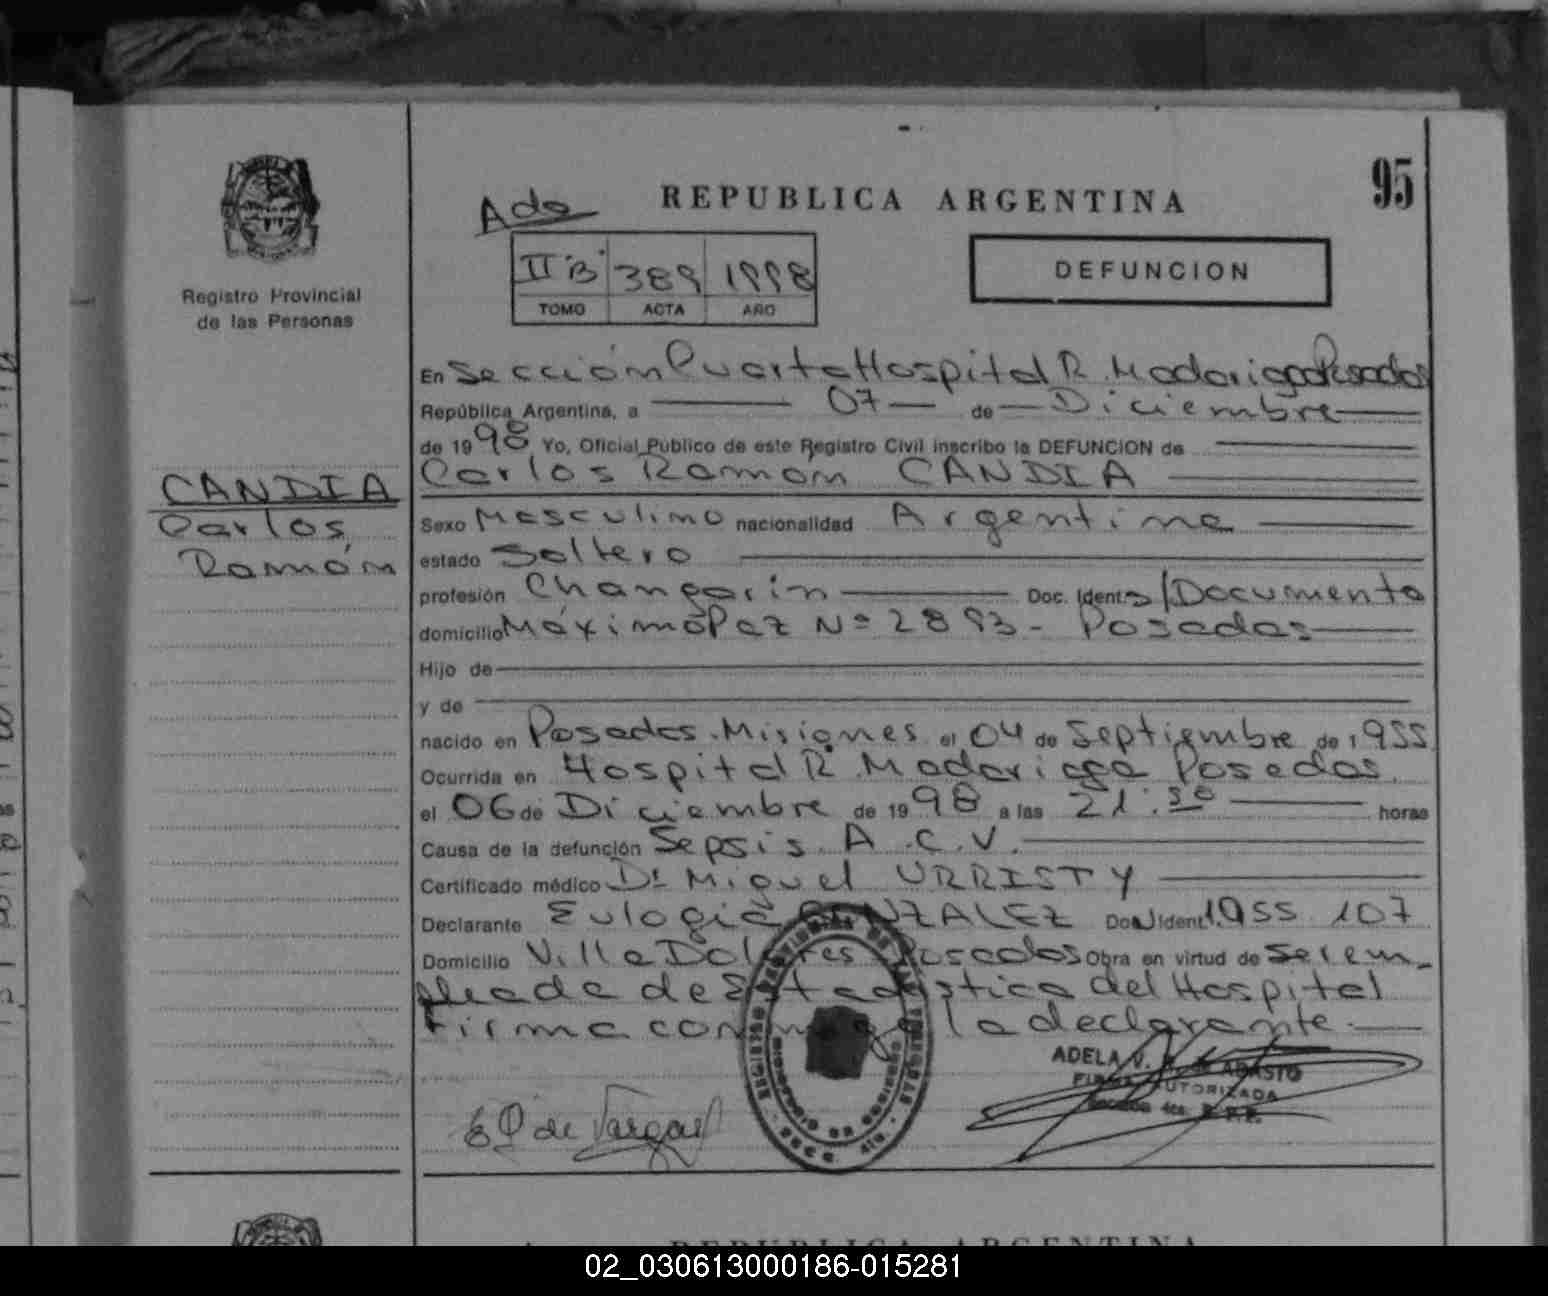 95
Ada
REPUBLICA ARGENTINA
II "B" 389 1998
TOMO ACTA AÑO
DEFUNCION
Registro Provincial
de las Personas
CANDIA
Carlos
Ramón
En Sección Cuarta Hospital R. Madariaga Posadas
República Argentina, a 07 de Diciembre
de 1998 Yo, Oficial Público de este Registro Civil inscribo la DEFUNCION de
Carlos Ramón CANDIA
Sexo Masculino nacionalidad Argentina
estado Soltero
profesión Changarín Doc. Ident. S/Documento
domicilio Máximo Paz Nº 2893 - Posadas
Hijo de
y de
nacido en Posadas. Misiones el 04 de Septiembre de 1955
Ocurrida en Hospital R. Madariaga Posadas
el 06 de Diciembre de 1998 a las 21:30 horas
Causa de la defunción Sepsis. A.C.V.
Certificado médico Dr. Miguel URRISTY
Declarante Eulogia GONZALEZ Doc. Ident. 1.955.107
Domicilio Villa Dolores Posadas Obra en virtud de ser em-
pleada de Estadística del Hospital
Firma conmigo la declarante.
ADELA V.
FIRMA AUTORIZADA
E G de Vargas
REPUBLICA ARGENTINA
02_030613000186-015281